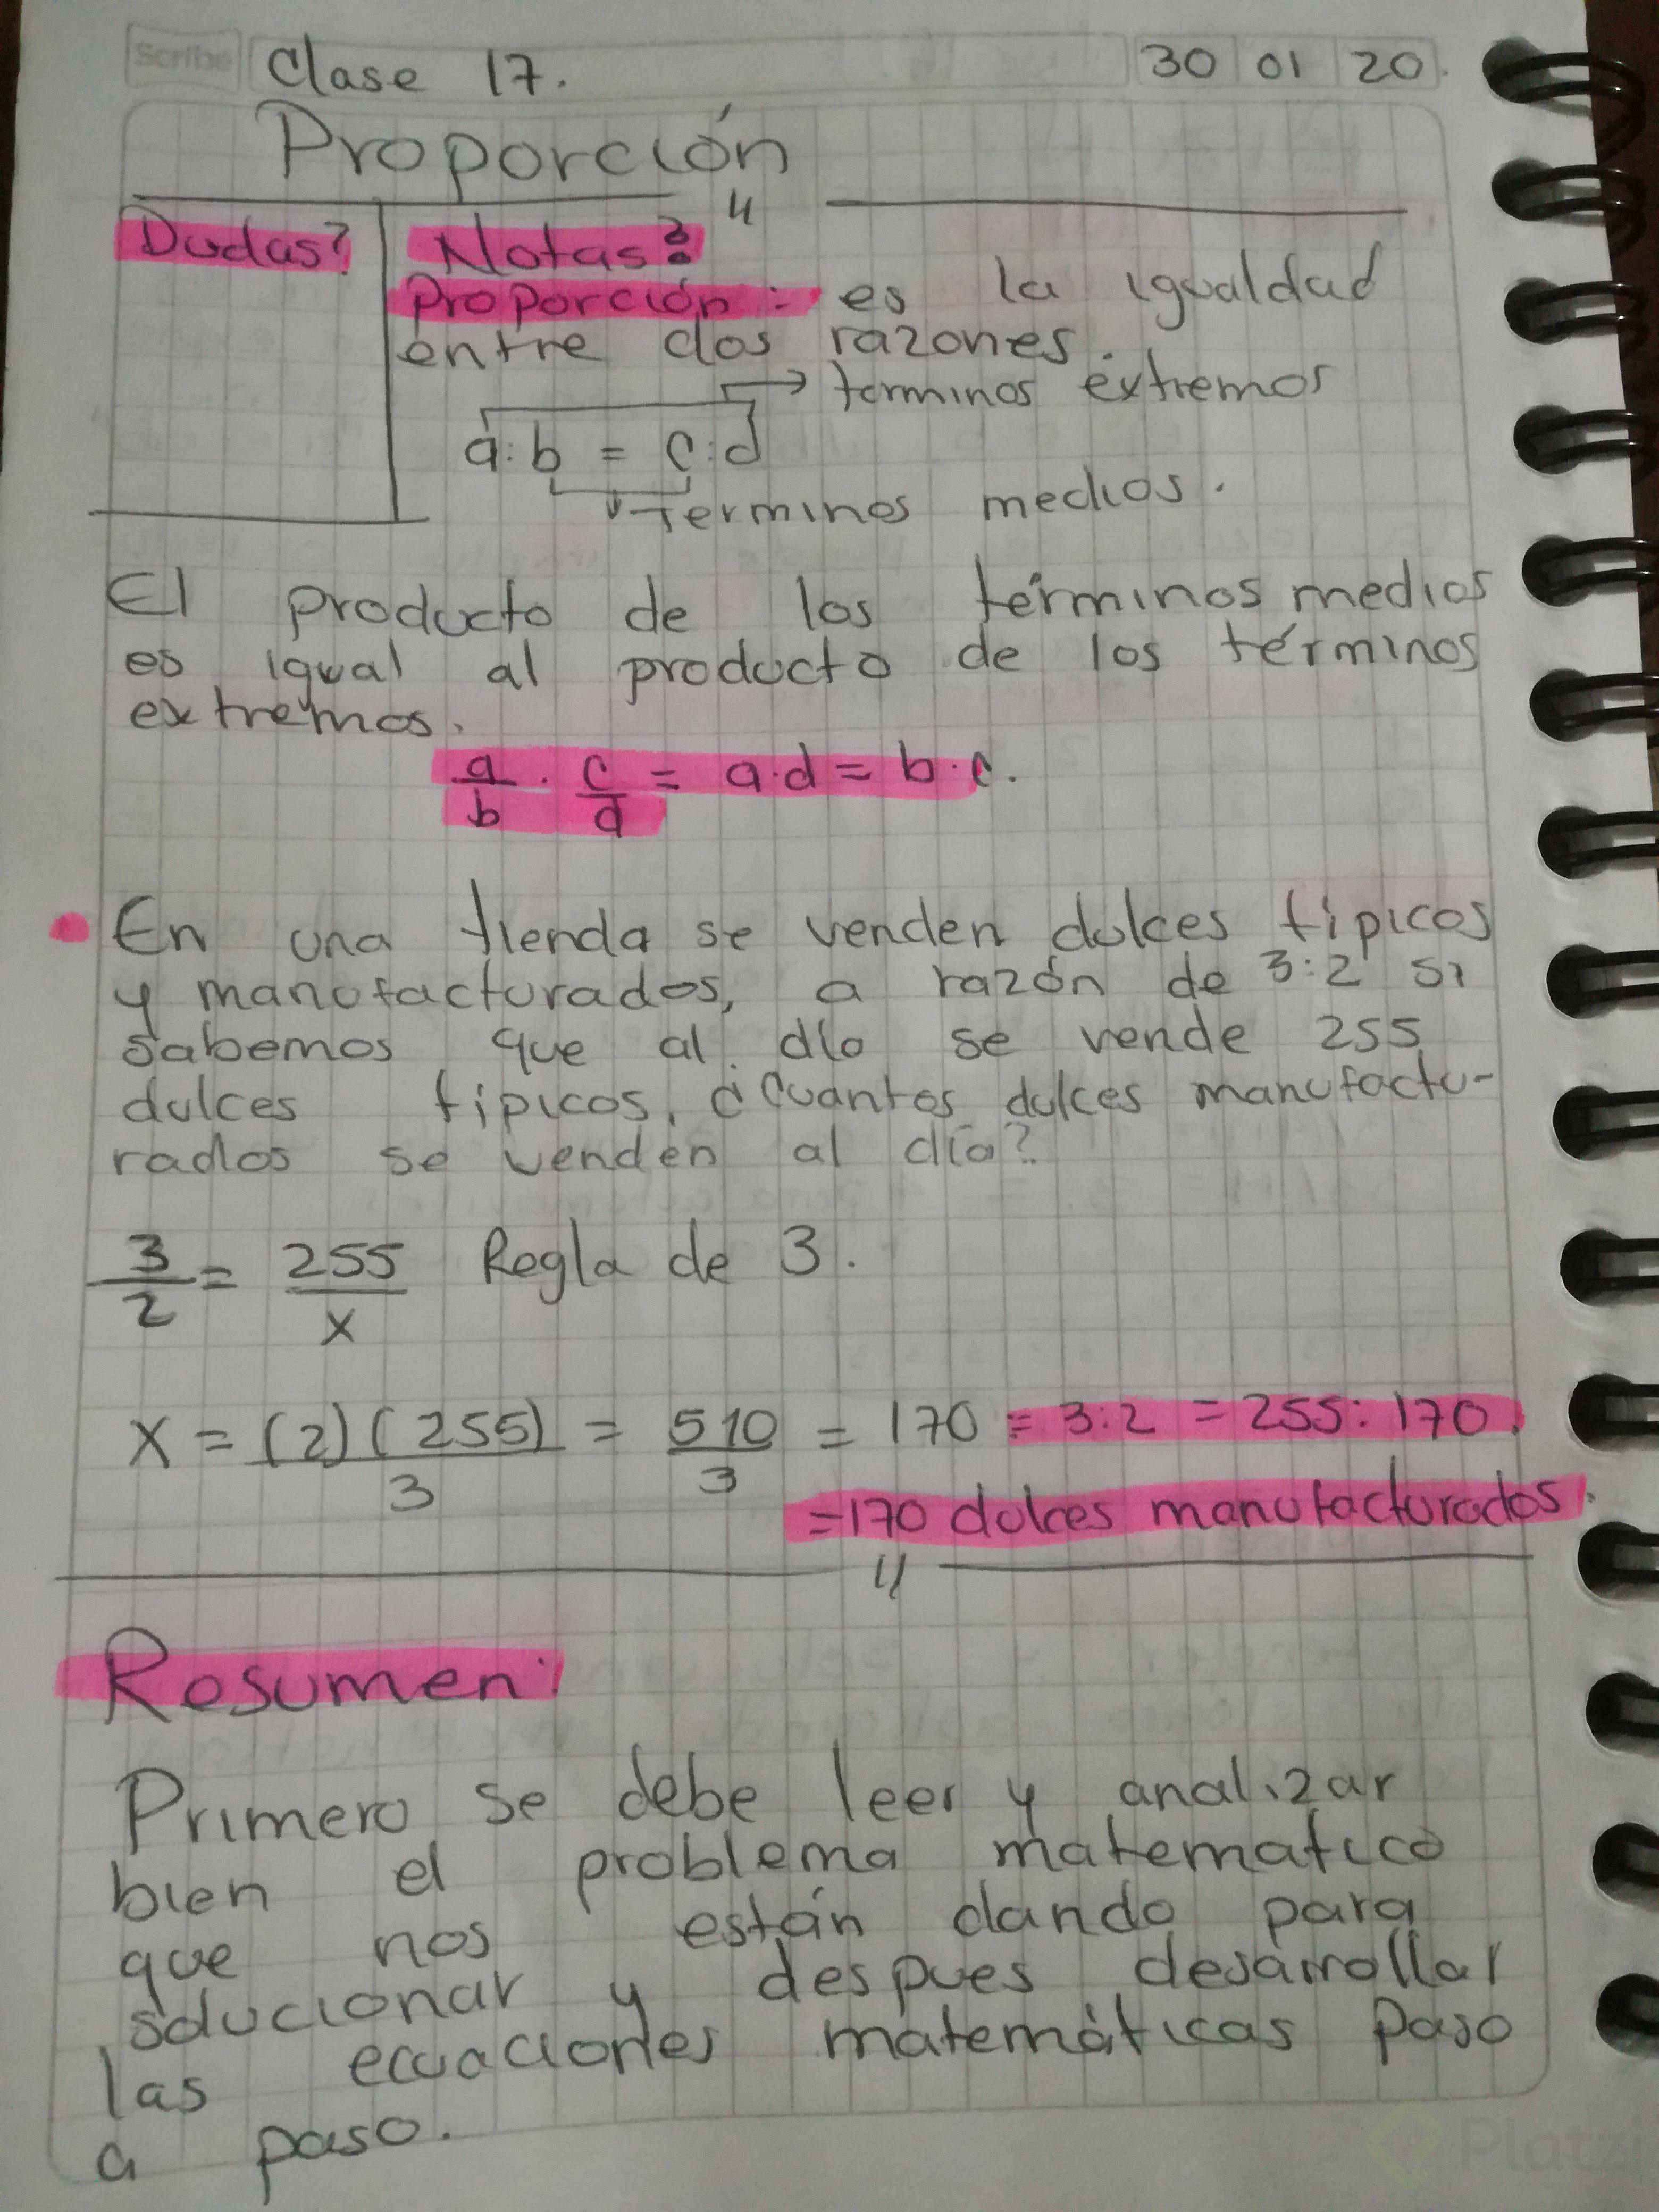 Scribe Clase 17. 30 01 20
Proporción
Dudas?
Notas?
Proporción: es la igualdad
entre dos razones.
terminos extremos
a:b = c:d
Terminos medios.
El producto de los términos medios
es igual al producto de los términos
extremos.
a/b · c/d = a·d = b·c.
En una tienda se venden dulces típicos
y manufacturados, a razón de 3:2 si
sabemos que al día se vende 255
dulces típicos, ¿Cuantos dulces manufactu-
rados se venden al día?
3/2 = 255/x Regla de 3.
x = (2)(255)/3 = 510/3 = 170 = 3:2 = 255:170.
=170 dulces manufacturados.
Resumen:
Primero se debe leer y analizar
bien el problema matematico
que nos están dando para
solucionar y despues desarrollar
las ecuaciones matemáticas paso
a paso.
Platzi